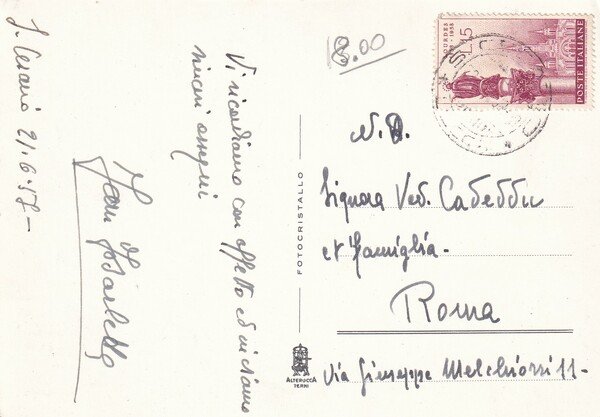 S. Cesario 21.6.58-
Vi ricordiamo con affetto ed inviamo
sinceri ossequi
Fam.
8.00
LOURDES
1858 1958
L. 15
POSTE ITALIANE
N.D.
Signora Ved. Cadeddu
et Famiglia-
Roma
Via Giuseppe Melchiorri 11-
FOTOCRISTALLO
ALTEROCCA
TERNI